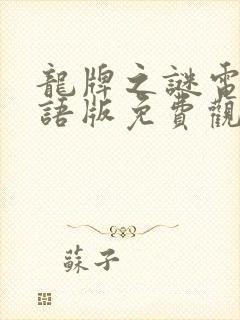 龍牌之謎電
語版免費觀
蘇子